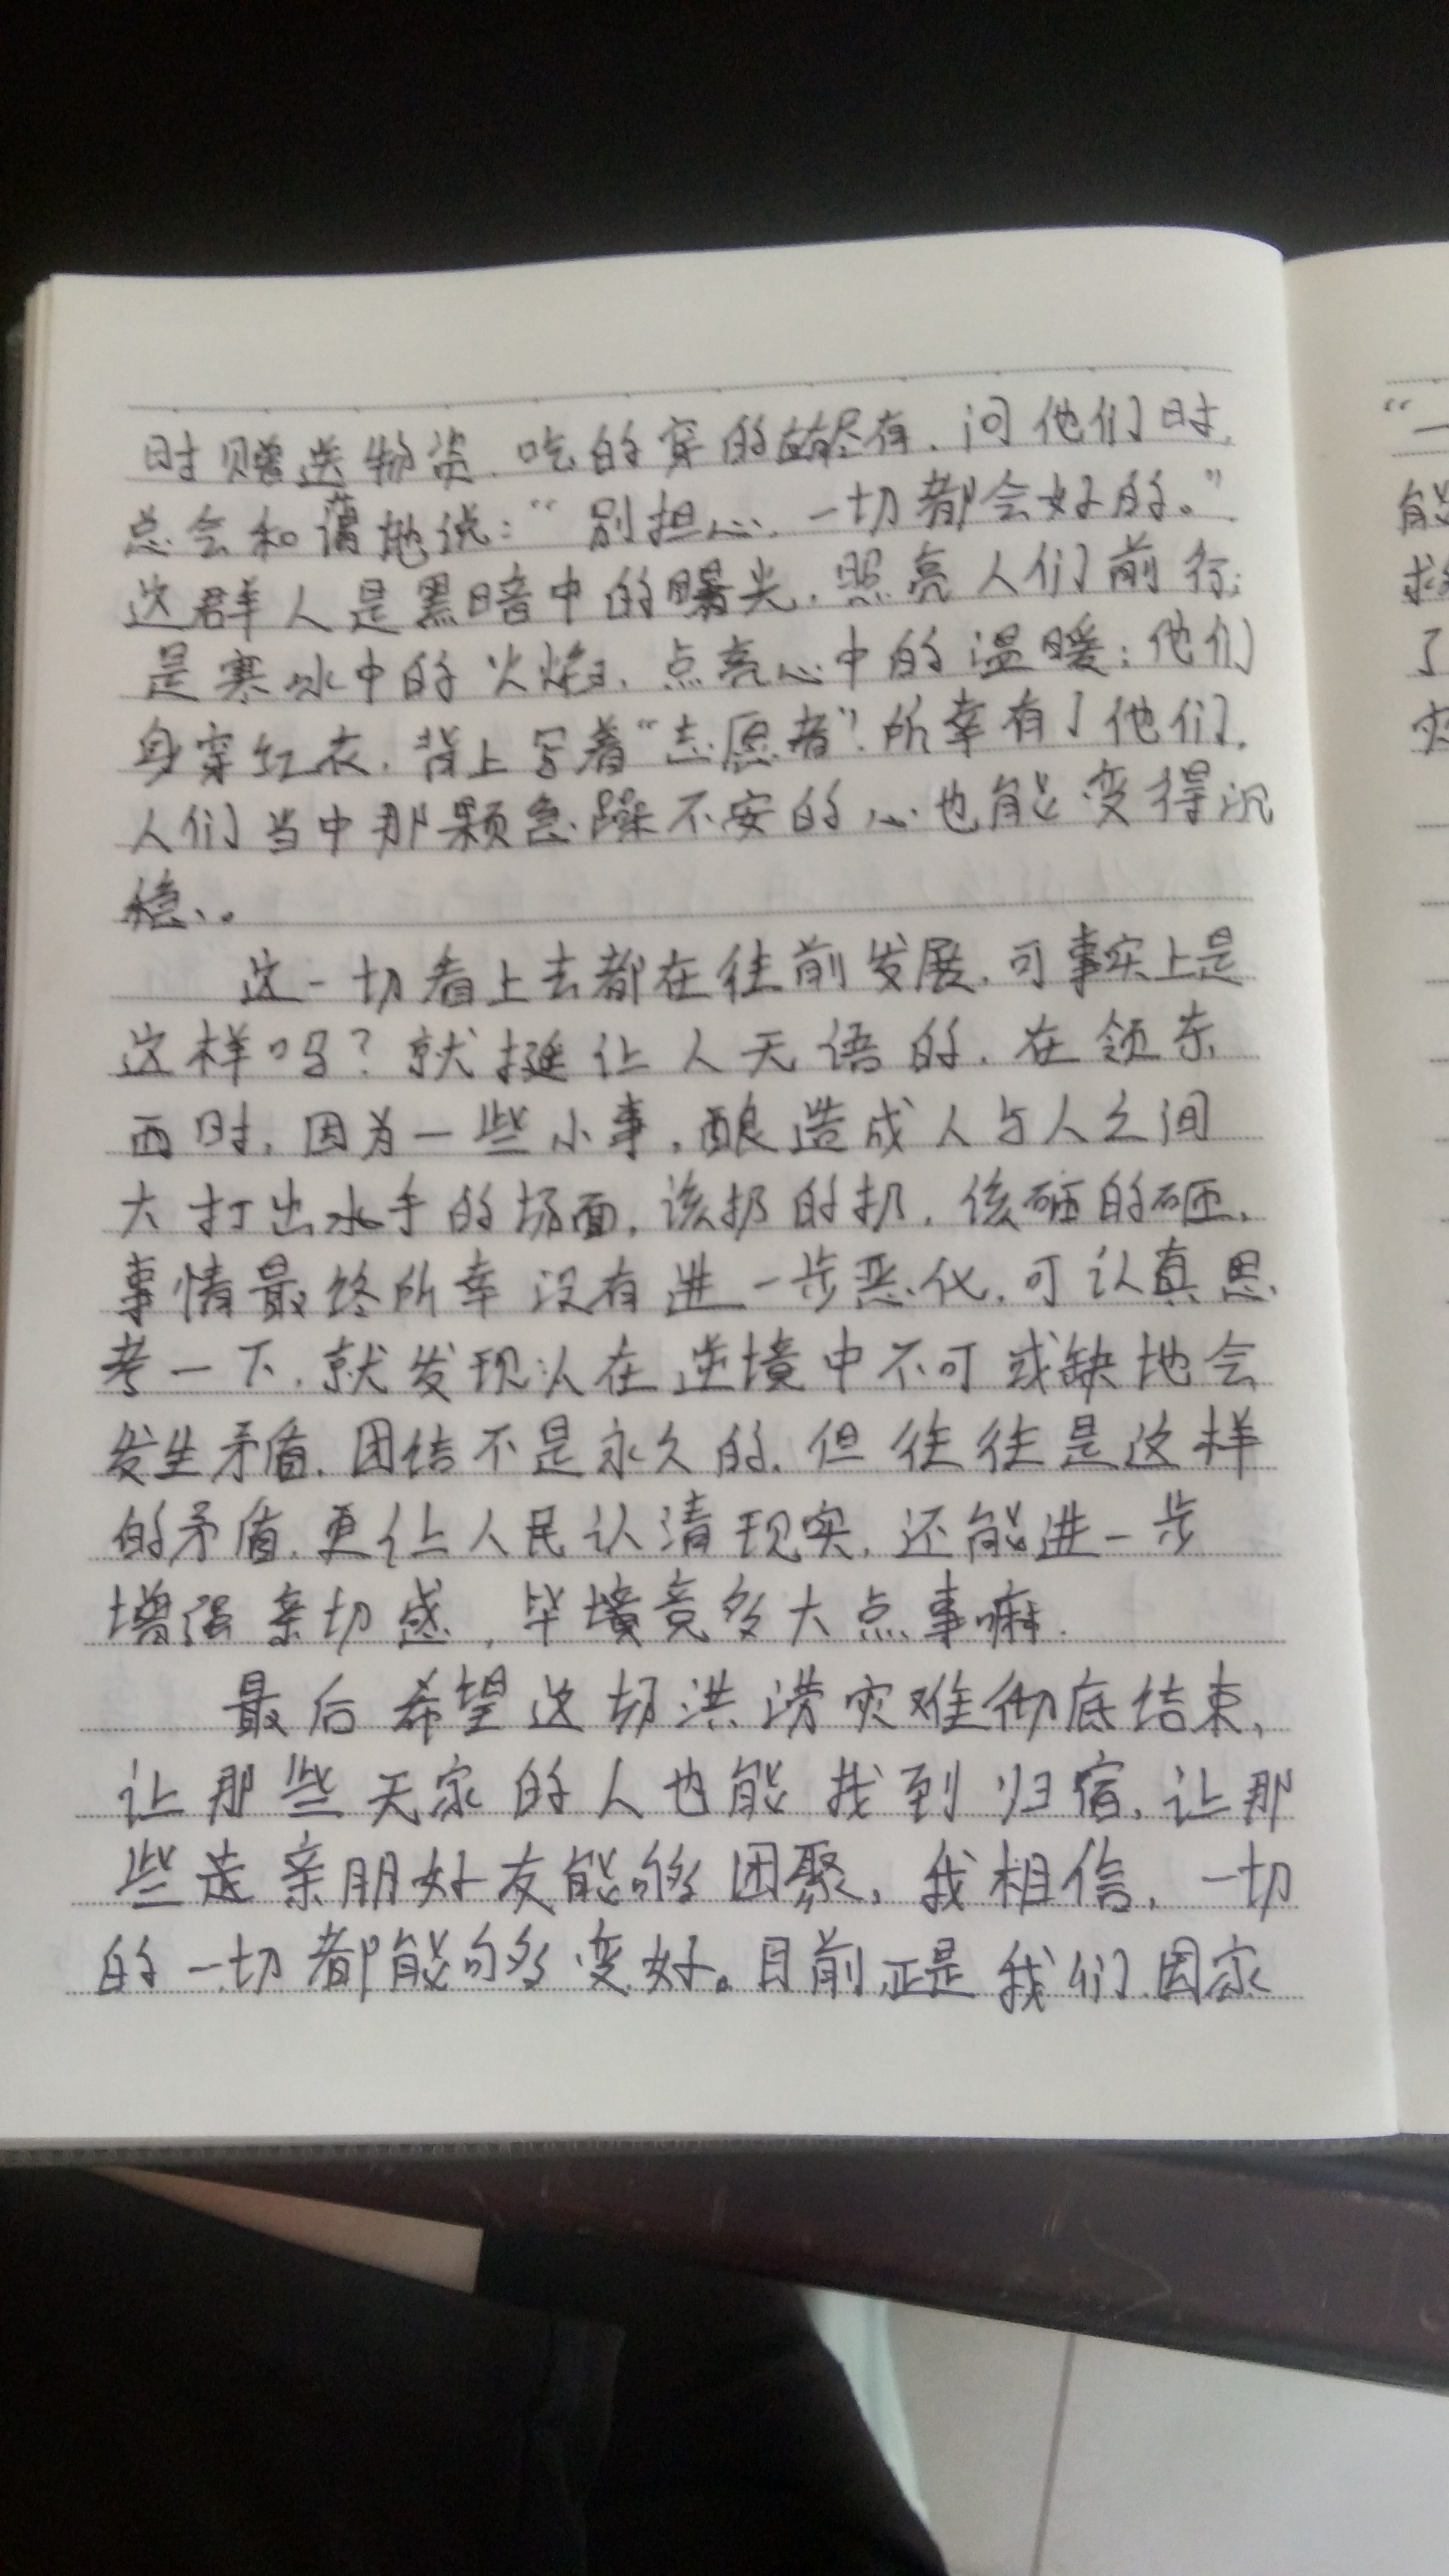 时赠送物资，吃的穿的应尽有，问他们时，
总会和蔼地说：“别担心，一切都会好的。”
这群人是黑暗中的曙光，照亮人们前行；
是寒冰中的火焰，点亮心中的温暖；他们
身穿红衣，背上写着“志愿者”，所幸有了他们，
人们当中那颗急躁不安的心也能变得沉
稳、。
这一切看上去都在往前发展，可事实上是
这样吗？就挺让人无语的，在领东
西时，因为一些小事，酿造成人与人之间
大打出水手的场面，该扔的扔，该砸的砸，
事情最终所幸没有进一步恶化，可认真思
考一下，就发现人在逆境中不可或缺地会
发生矛盾，团结不是永久的，但往往是这样
的矛盾，更让人民认清现实，还能进一步
增强亲切感，毕竟多大点事嘛。
最后希望这场洪涝灾难彻底结束，
让那些无家的人也能找到归宿，让那
些走亲朋好友能够团聚，我相信，一切
的一切都能够变好。目前正是我们国家
“一
能
求
了
灾